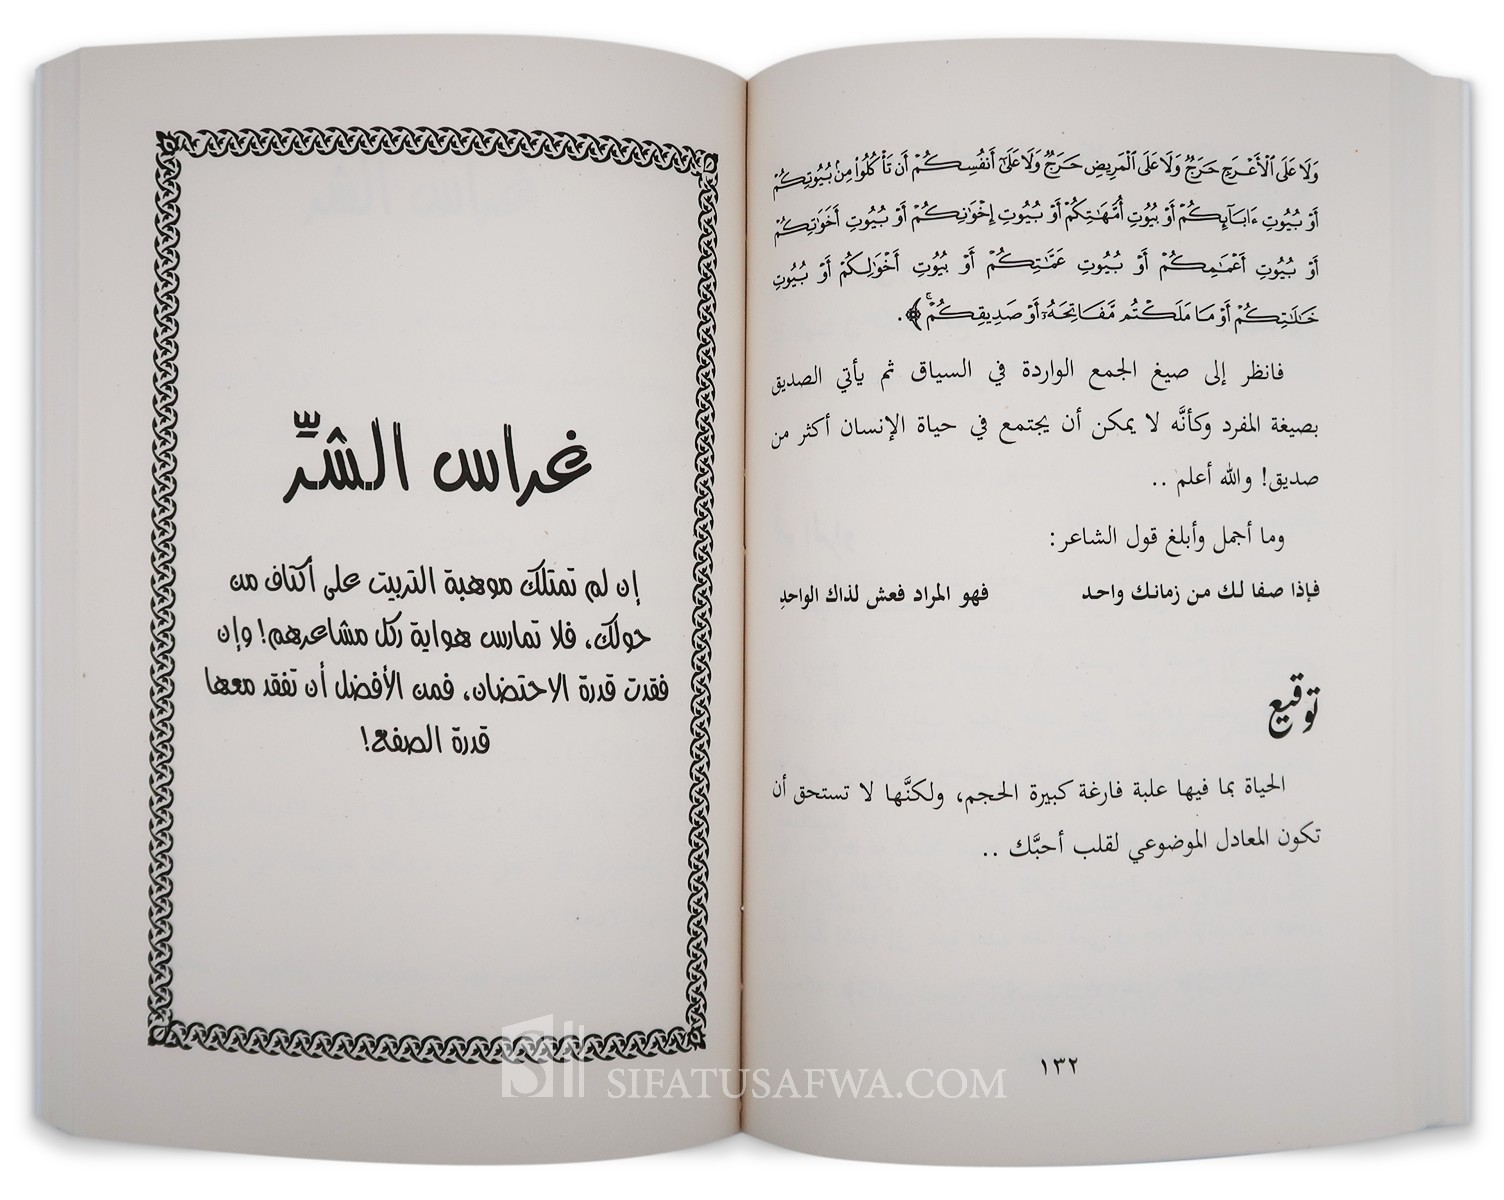 وَلَا عَلَى ٱلْأَعْرَجِ حَرَجٌ وَلَا عَلَى ٱلْمَرِيضِ حَرَجٌ وَلَا عَلَىٰٓ أَنفُسِكُمْ أَن تَأْكُلُوا۟ مِنۢ بُيُوتِكُمْ
أَوْ بُيُوتِ ءَابَآئِكُمْ أَوْ بُيُوتِ أُمَّهَٰتِكُمْ أَوْ بُيُوتِ إِخْوَٰنِكُمْ أَوْ بُيُوتِ أَخَوَٰتِكُمْ
أَوْ بُيُوتِ أَعْمَٰمِكُمْ أَوْ بُيُوتِ عَمَّٰتِكُمْ أَوْ بُيُوتِ أَخْوَٰلِكُمْ أَوْ بُيُوتِ
خَٰلَٰتِكُمْ أَوْ مَا مَلَكْتُم مَّفَاتِحَهُۥٓ أَوْ صَدِيقِكُمْ ۚ ﴾.
فانظر إلى صيغ الجمع الواردة في السياق ثم يأتي الصديق
بصيغة المفرد وكأنَّه لا يمكن أن يجتمع في حياة الإنسان أكثر من
صديق! والله أعلم ..
وما أجمل وأبلغ قول الشاعر:
فإذا صفا لك من زمانك واحد فهو المراد فعش لذاك الواحدِ
توقيع
الحياة بما فيها علبة فارغة كبيرة الحجم، ولكنَّها لا تستحق أن
تكون المعادل الموضوعي لقلب أحبَّك ..
١٣٢
غراس الشرِّ
إن لم تمتلك موهبة التربيت على أكتاف من
حولك، فلا تمارس هواية ركل مشاعرهم! وإن
فقدت قدرة الاحتضان، فمن الأفضل أن تفقد معها
قدرة الصفع!
SIFATUSAFWA.COM